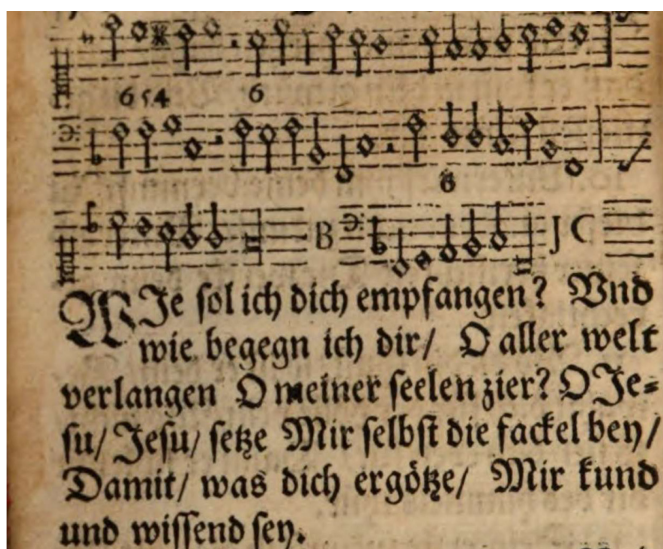 6 5 4 6
6
B J C
WIe sol ich dich empfangen? Vnd
wie begegn ich dir/ O aller welt
verlangen O meiner seelen zier? O Je=
su/ Jesu/ setze Mir selbst die fackel bey/
Damit/ was dich ergötze/ Mir kund
und wissend sey.